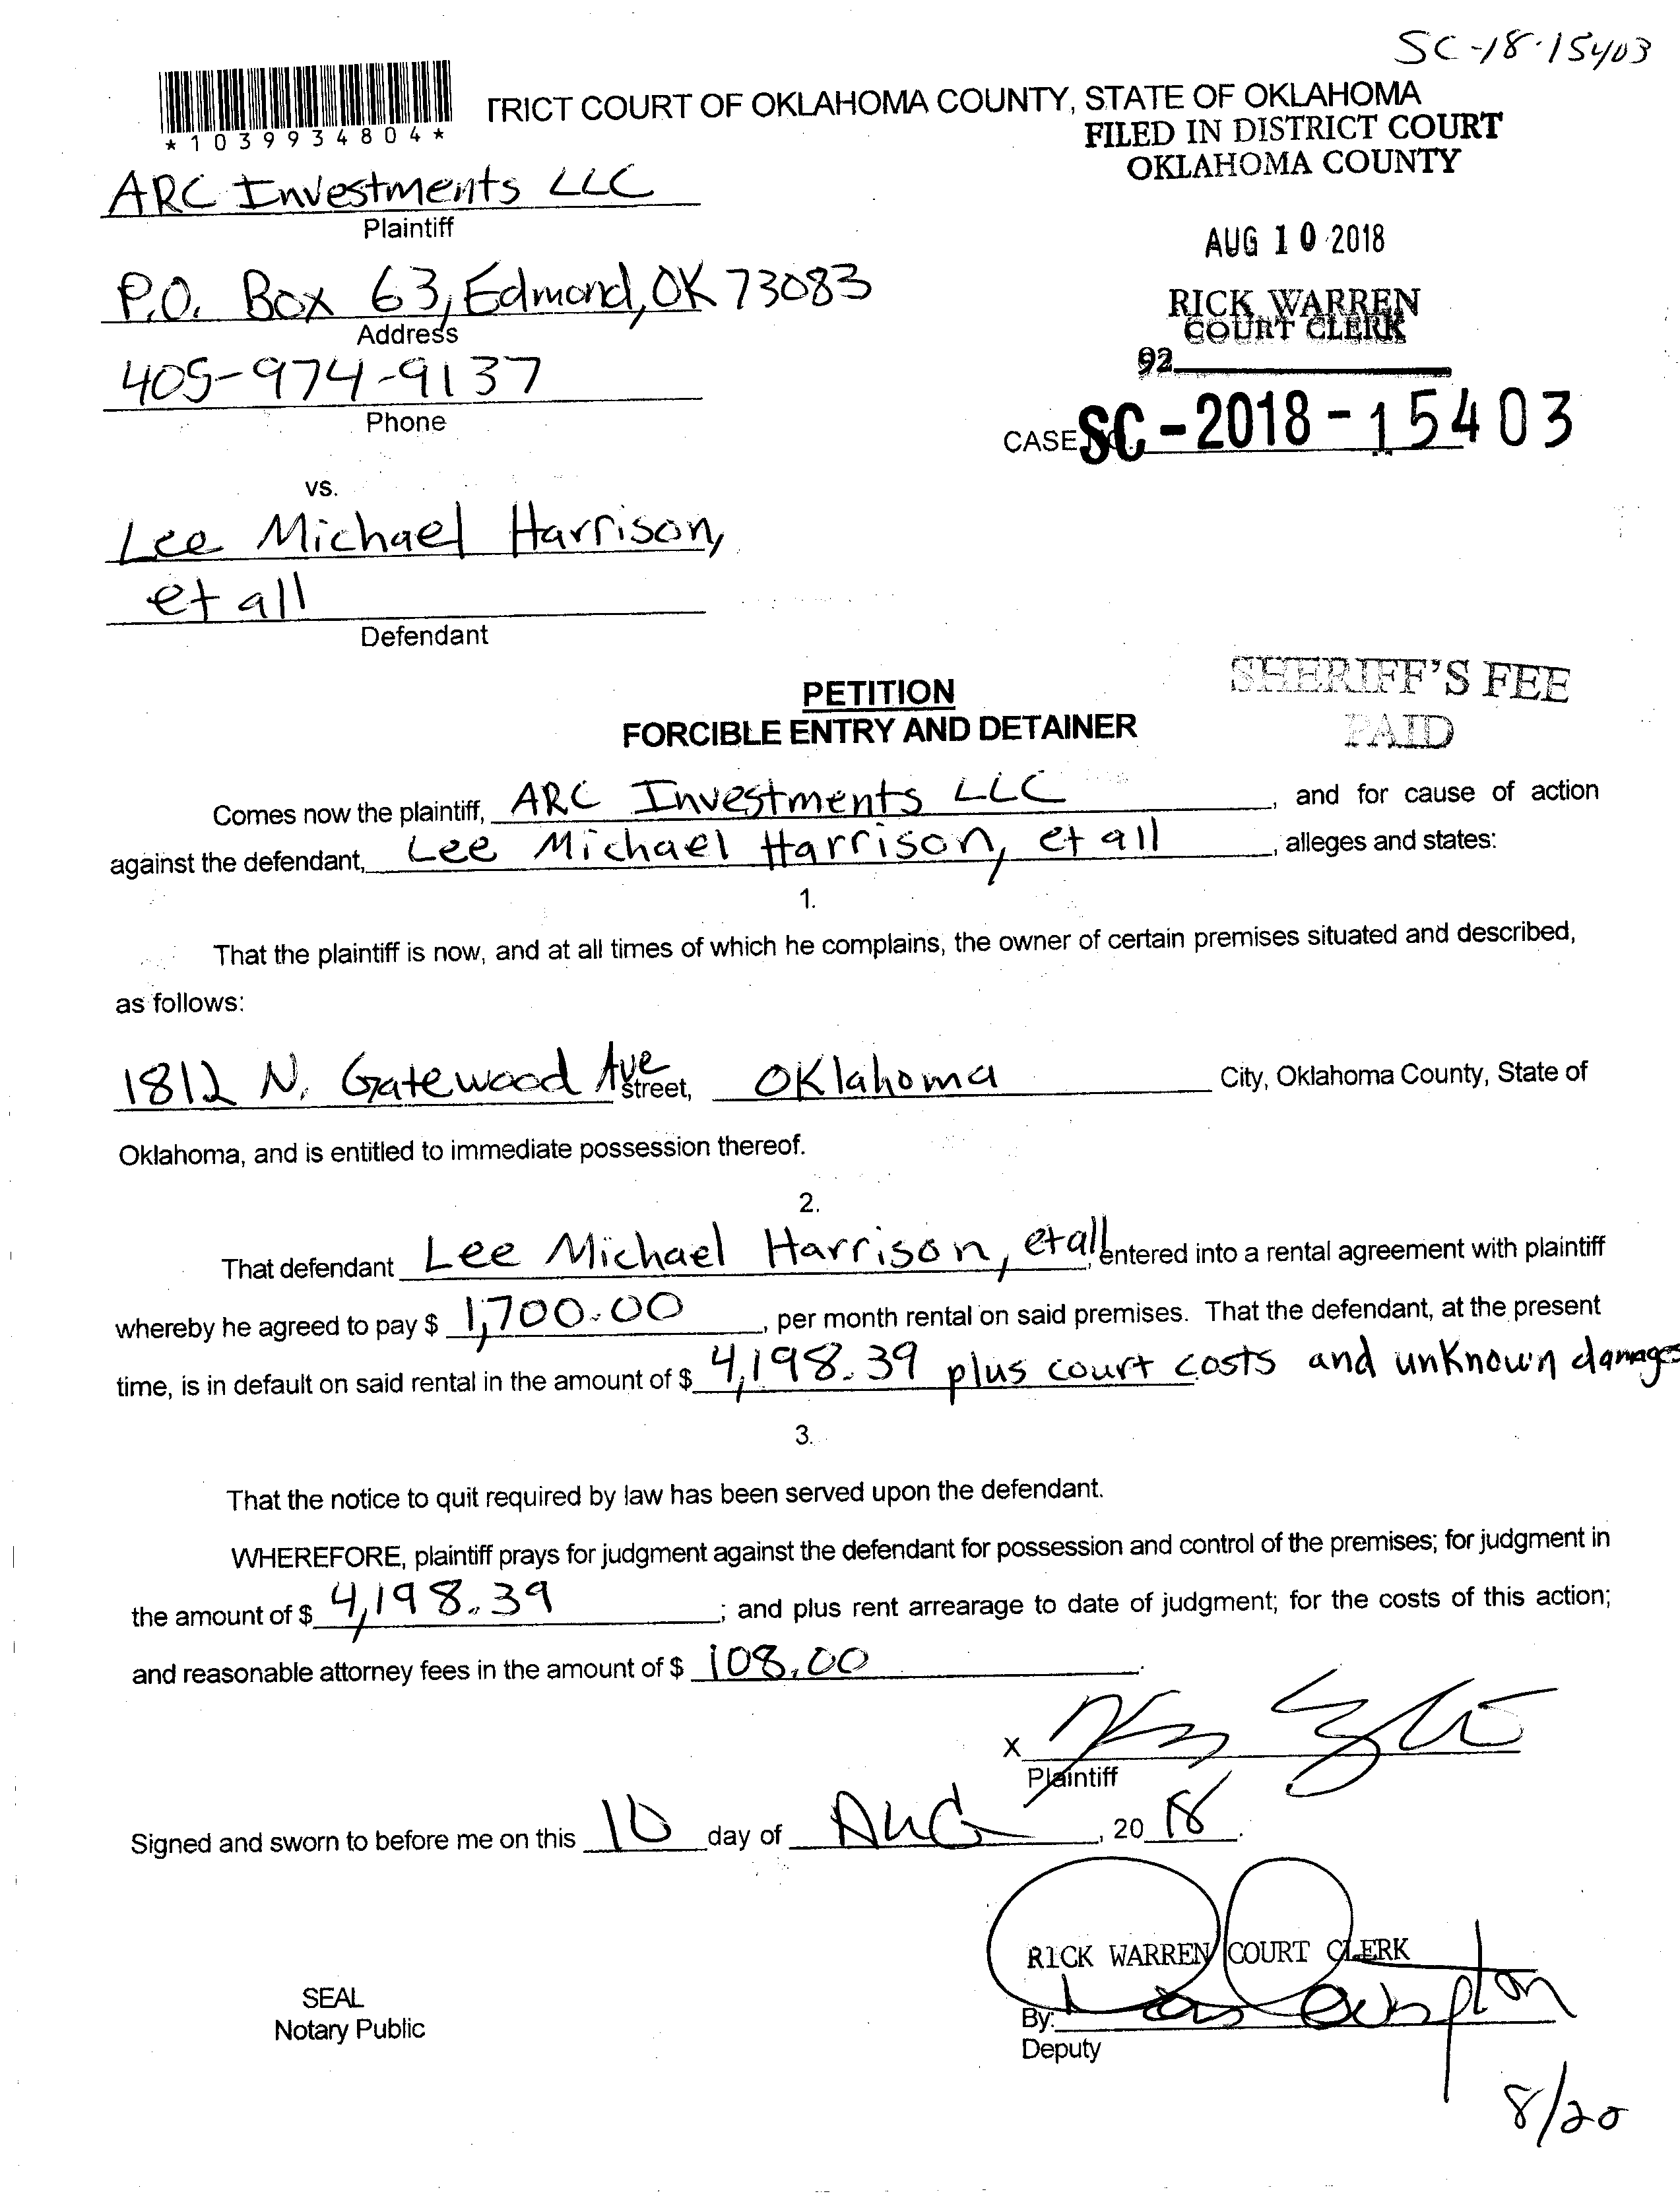 SC-18-15403
*1039934804*
TRICT COURT OF OKLAHOMA COUNTY, STATE OF OKLAHOMA
FILED IN DISTRICT COURT
OKLAHOMA COUNTY
ARC Investments LLC
Plaintiff
AUG 10 2018
P.O. Box 63, Edmond, OK 73083
Address
RICK WARREN
COURT CLERK
92
405-974-9137
Phone
CASE NO. SC-2018-15403
vs.
Lee Michael Harrison,
et all
Defendant
SHERIFF'S FEE
PAID
PETITION
FORCIBLE ENTRY AND DETAINER
Comes now the plaintiff, ARC Investments LLC, and for cause of action
against the defendant, Lee Michael Harrison, et all, alleges and states:
1.
That the plaintiff is now, and at all times of which he complains, the owner of certain premises situated and described,
as follows:
1812 N. Gatewood Ave Street, Oklahoma City, Oklahoma County, State of
Oklahoma, and is entitled to immediate possession thereof.
2.
That defendant Lee Michael Harrison, et all, entered into a rental agreement with plaintiff
whereby he agreed to pay $ 1,700.00, per month rental on said premises. That the defendant, at the present
time, is in default on said rental in the amount of $ 4,198.39 plus court costs and unknown damages
3.
That the notice to quit required by law has been served upon the defendant.
WHEREFORE, plaintiff prays for judgment against the defendant for possession and control of the premises; for judgment in
the amount of $ 4,198.39; and plus rent arrearage to date of judgment; for the costs of this action;
and reasonable attorney fees in the amount of $ 108.00.
X
Plaintiff
Signed and sworn to before me on this 10 day of AUG, 20 18.
RICK WARREN COURT CLERK
SEAL
Notary Public
By:
Deputy
8/20